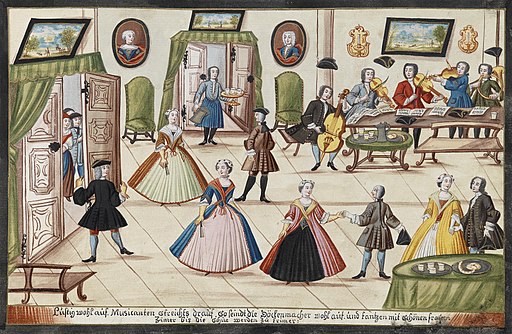 Lustig wohl auf Musicanten streichts drauf, so seindt die Döckenmacher wohl auf, und tantzen mit schönen frauen
Zimer bis die Schue werden zu